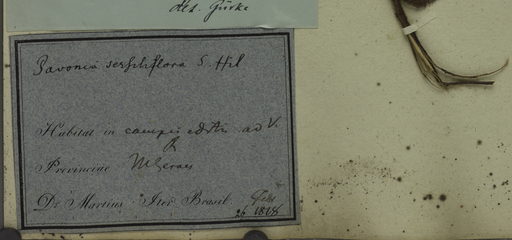 det. Gürke
Pavonia sessiliflora S. Hil
Habitat in campis editis ad V.
R
Provinciae M Geraes
Dr. Martius Iter Brasil. Febr
1818